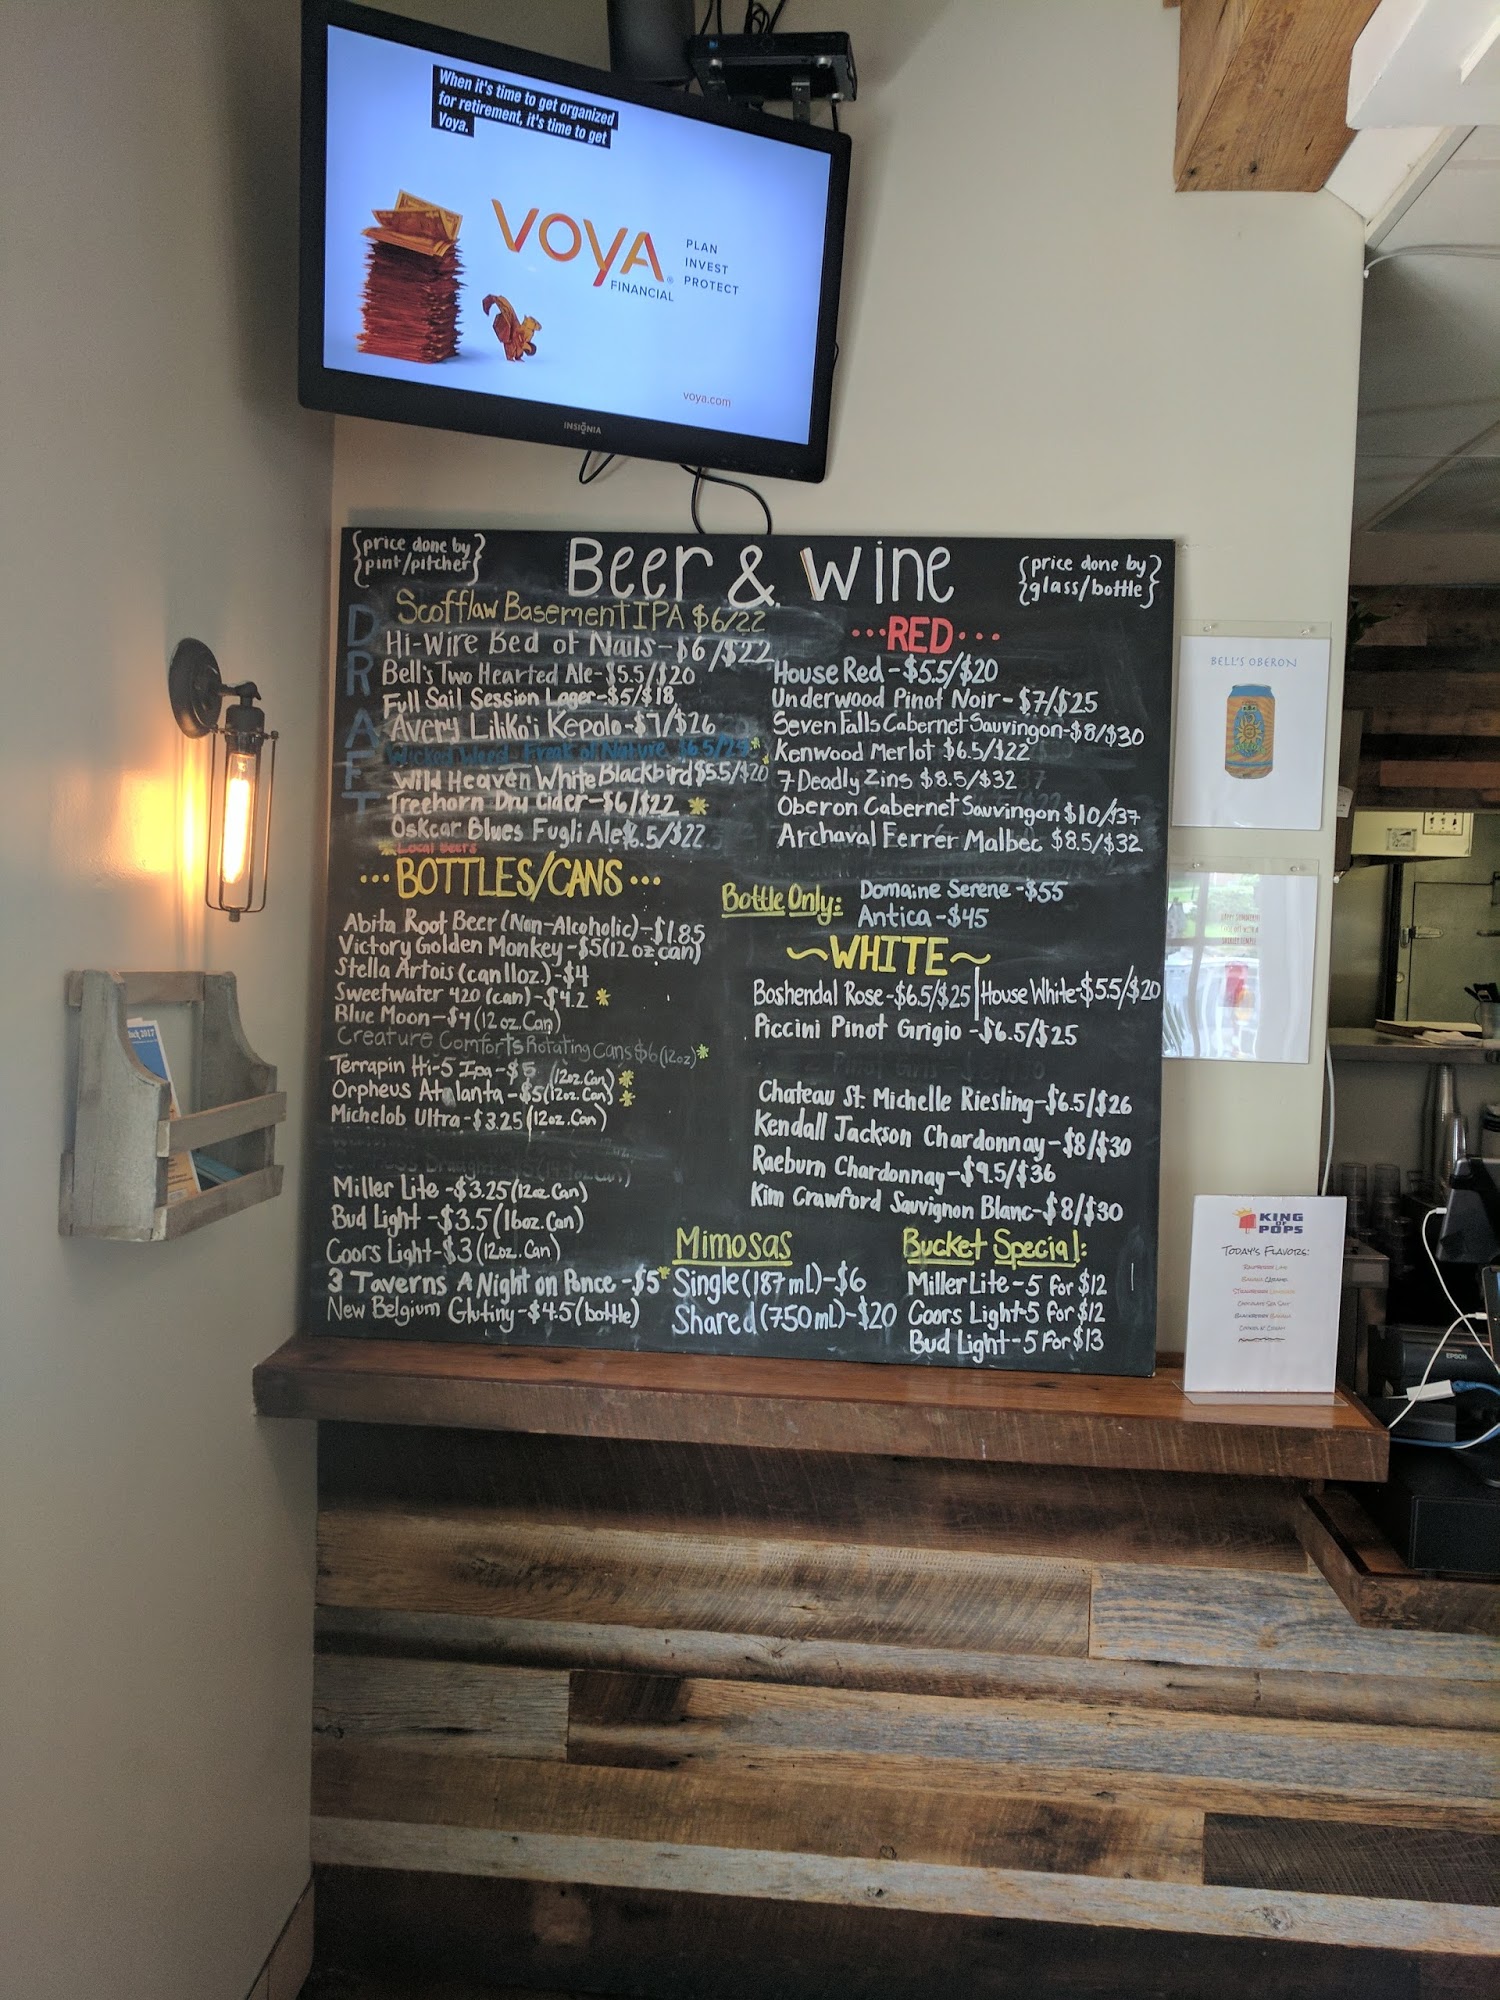 When it's time to get organized
for retirement, it's time to get
Voya.
VOYA
FINANCIAL
PLAN
INVEST
PROTECT
voya.com
INSIGNIA
{price done by
pint/pitcher}
Beer & Wine
{price done by
glass/bottle}
DRAFT
Scofflaw Basement IPA $6/22
Hi-Wire Bed of Nails-$6/$22
Bell's Two Hearted Ale-$5.5/$20
Full Sail Session Lager-$5/$18
Avery Liliko'i Kepolo-$7/$26
Wicked Weed Freak of Nature $6.5/25*
Wild Heaven White Blackbird $5.5/$20*
Treehorn Dry Cider-$6/$22 *
Oskcar Blues Fugli Ale $6.5/$22
*Local Beers
...BOTTLES/CANS...
Abita Root Beer (Non-Alcoholic)-$1.85
Victory Golden Monkey-$5(12 oz can)
Stella Artois (can 11oz.)-$4
Sweetwater 420 (can)-$4.2 *
Blue Moon-$4(12 oz. Can)
Creature Comforts Rotating Cans $6(12oz)*
Terrapin Hi-5 Ipa-$5 (12oz. Can) *
Orpheus Atalanta-$5(12oz. Can) *
Michelob Ultra-$3.25(12oz. Can)
Miller Lite-$3.25(12oz. Can)
Bud Light-$3.5(16oz. Can)
Coors Light-$3(12oz. Can)
3 Taverns A Night on Ponce-$5*
New Belgium Glutiny-$4.5(bottle)
...RED...
House Red-$5.5/$20
Underwood Pinot Noir-$7/$25
Seven Falls Cabernet Sauvingon-$8/$30
Kenwood Merlot $6.5/$22
7 Deadly Zins $8.5/$32
Oberon Cabernet Sauvingon $10/$37
Archaval Ferrer Malbec $8.5/$32
Bottle Only: Domaine Serene-$55
Antica-$45
~WHITE~
Boshendal Rose-$6.5/$25 | House White-$5.5/$20
Piccini Pinot Girigio-$6.5/$25
Chateau St. Michelle Riesling-$6.5/$26
Kendall Jackson Chardonnay-$8/$30
Raeburn Chardonnay-$9.5/$36
Kim Crawford Sauvignon Blanc-$8/$30
Mimosas
Single(187 mL)-$6
Shared(750mL)-$20
Bucket Special:
Miller Lite-5 for $12
Coors Light-5 for $12
Bud Light-5 for $13
BELL'S OBERON
KING
OF
POPS
TODAY'S FLAVORS:
EPSON
2017